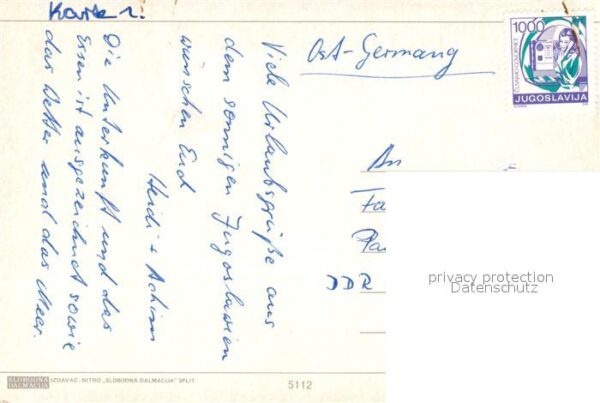 Karte 1:
Ost-Germany
1000
JUGOSLAVIJA
Viele Urlaubsgrüße aus
dem sonnigen Jugoslawien
wünschen Euch
Heidi + Achim
Die Unterkunft und das
Essen ist ausgezeichnet sowie
das Wetter und das Meer.
An
Fa
DDR
privacy protection
Datenschutz
SLOBODNA
DALMACIJA IZDAVAČ: NITRO „SLOBODNA DALMACIJA" SPLIT
5112